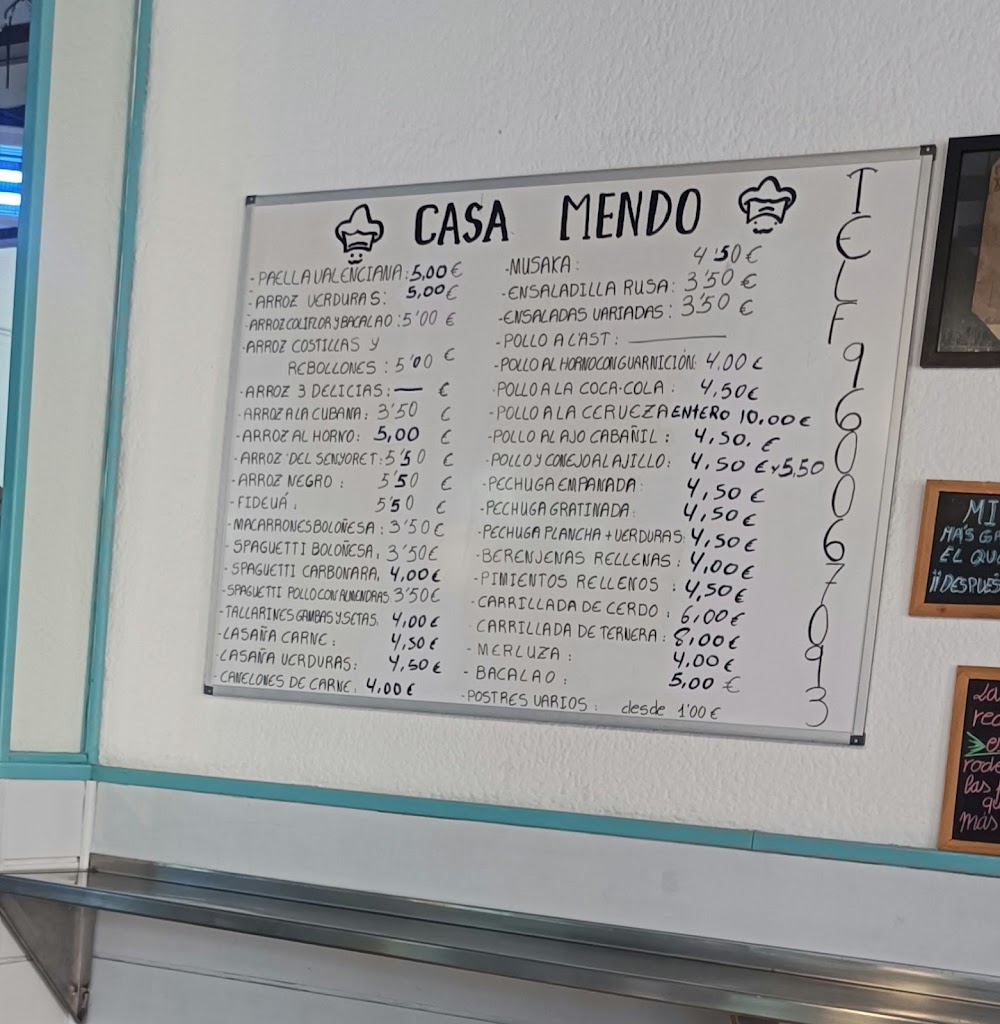 CASA MENDO
- PAELLA VALENCIANA: 5,00 €
- ARROZ VERDURAS: 5,00 €
- ARROZ COLIFLOR Y BACALAO: 5'00 €
- ARROZ COSTILLAS Y
REBOLLONES: 5'00 €
- ARROZ 3 DELICIAS: — €
- ARROZ A LA CUBANA: 3'50 €
- ARROZ AL HORNO: 5,00 €
- ARROZ DEL SENYORET: 5'50 €
- ARROZ NEGRO: 5'50 €
- FIDEUÁ: 5'50 €
- MACARRONES BOLOÑESA: 3'50 €
- SPAGUETTI BOLOÑESA: 3'50 €
- SPAGUETTI CARBONARA, 4,00 €
- SPAGUETTI POLLO CON ALMENDRAS: 3'50 €
- TALLARINES GAMBAS Y SETAS, 4,00 €
- LASAÑA CARNE: 4,50 €
- LASAÑA VERDURAS: 4,50 €
- CANELONES DE CARNE: 4,00 €
- MUSAKA: 4'50 €
- ENSALADILLA RUSA: 3'50 €
- ENSALADAS VARIADAS: 3'50 €
- POLLO A L'AST: —
- POLLO AL HORNO CON GUARNICIÓN: 4,00 €
- POLLO A LA COCA-COLA: 4,50 €
- POLLO A LA CERVEZA ENTERO 10,00 €
- POLLO AL AJO CABAÑIL: 4,50. €
- POLLO Y CONEJO AL AJILLO: 4,50 € y 5,50
- PECHUGA EMPANADA: 4,50 €
- PECHUGA GRATINADA: 4,50 €
- PECHUGA PLANCHA + VERDURAS: 4,50 €
- BERENJENAS RELLENAS: 4,00 €
- PIMIENTOS RELLENOS: 4,50 €
- CARRILLADA DE CERDO: 6,00 €
- CARRILLADA DE TERNERA: 8,00 €
- MERLUZA: 4,00 €
- BACALAO: 5,00 €
- POSTRES VARIOS: desde 1'00 €
TELF 960067093
MI
MÁS
EL
¡¡DESPUES
más